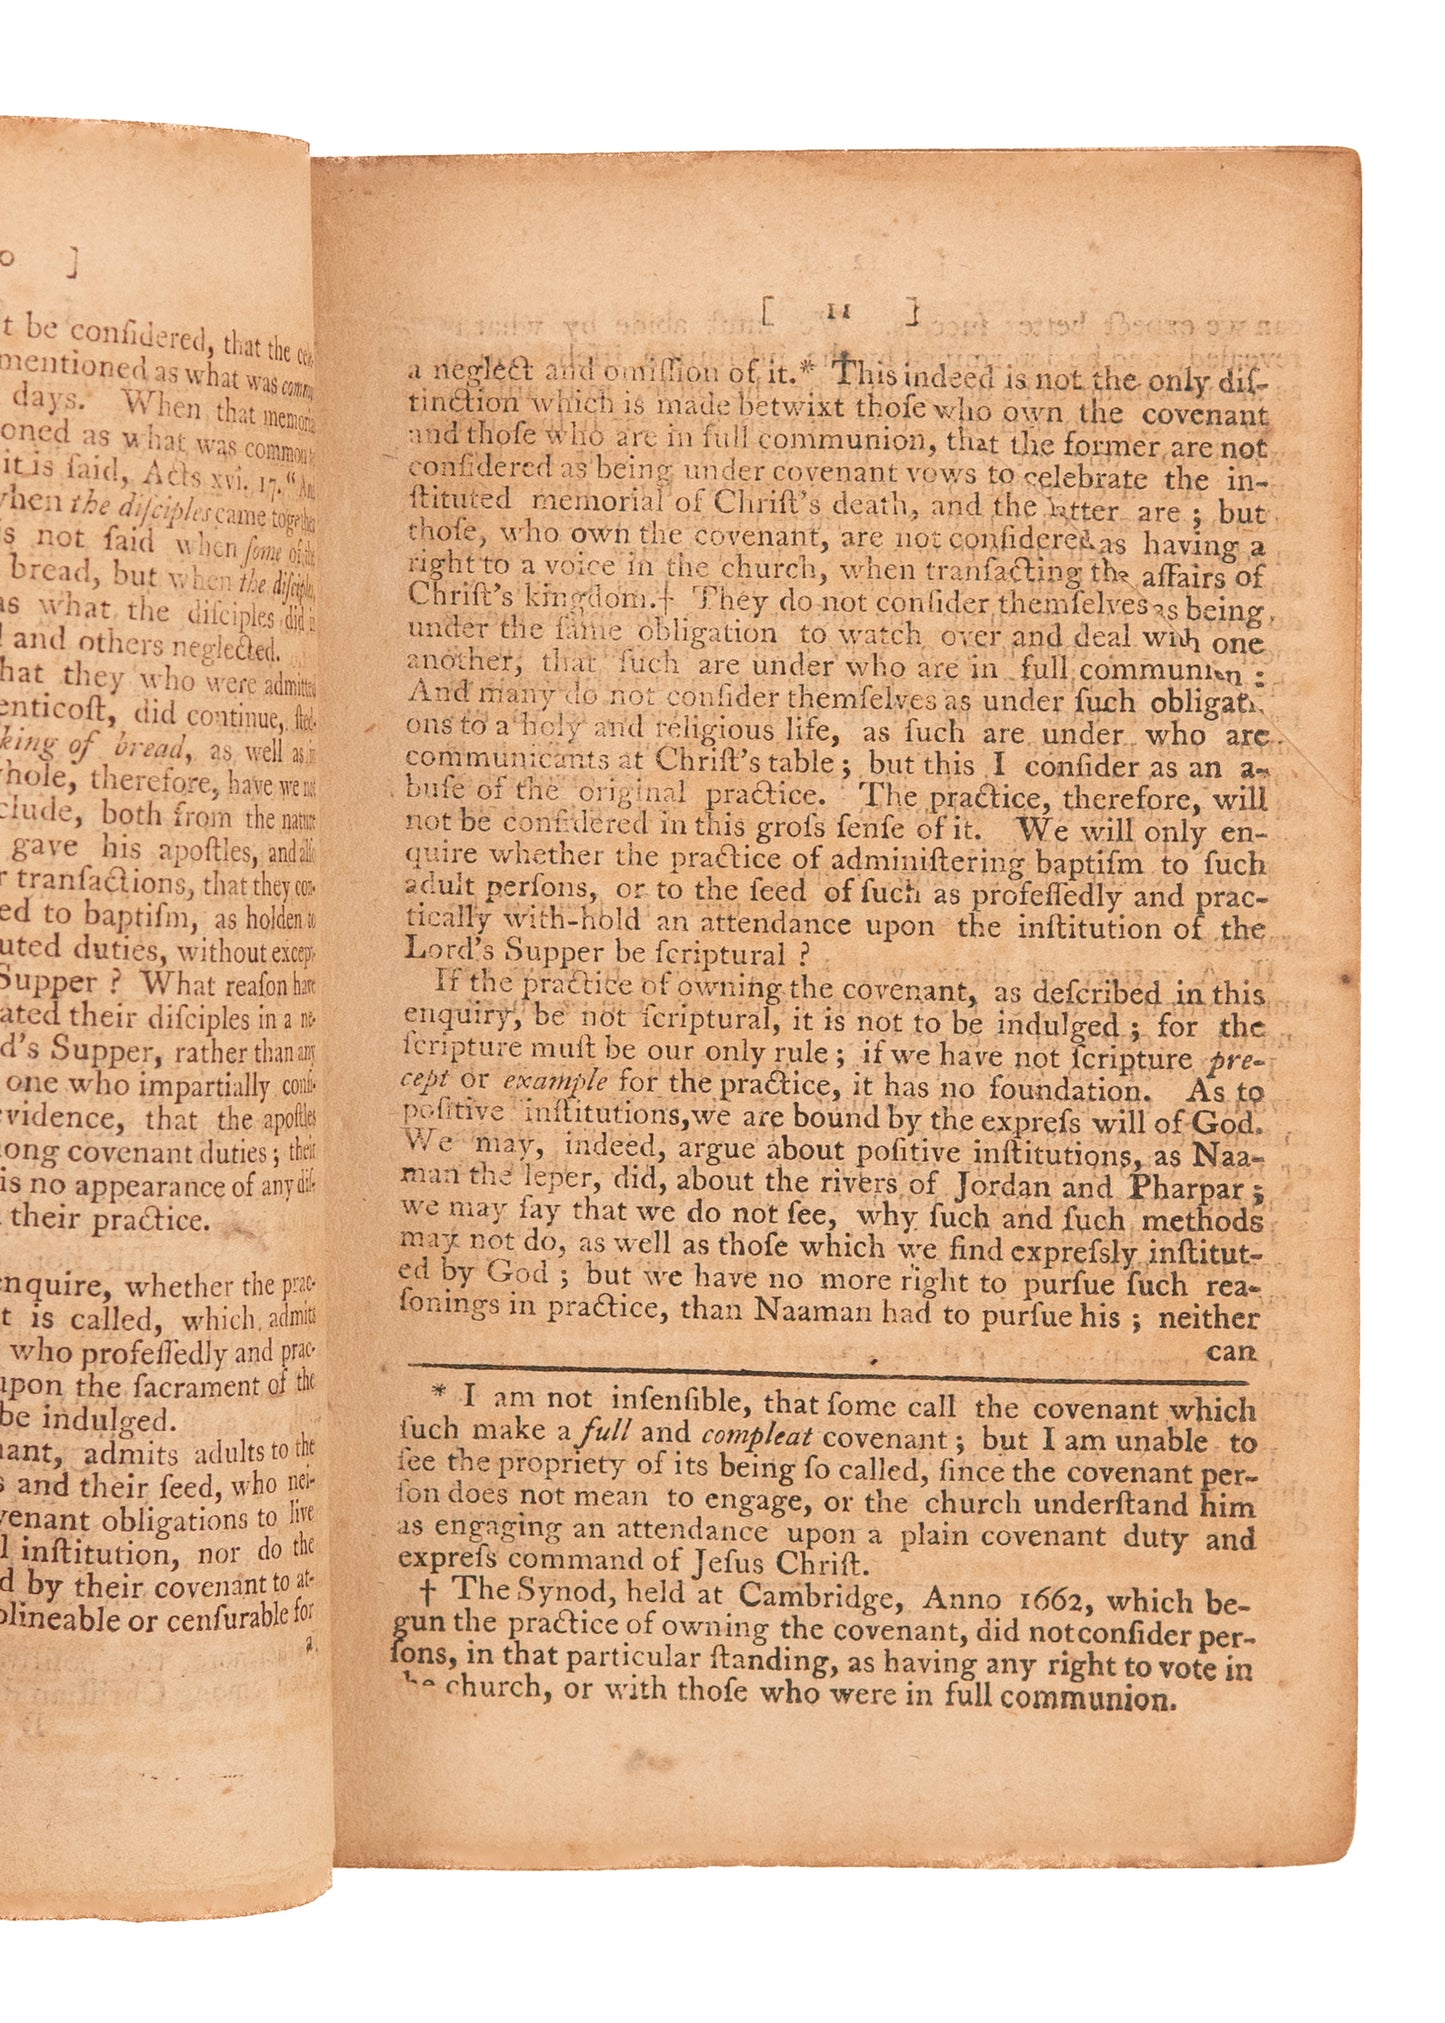 o ]
t be conſidered, that the
mentioned as what was
days. When that
oned as what was common
it is ſaid, Acts xvi. 17. "And
when the diſciples came together
s not ſaid when ſome of the
bread, but when the diſciples
as what the diſciples did
and others neglected.
hat they who were admitted
enticoſt, did continue,
king of bread, as well as
hole, therefore, have we not
clude, both from the nature
gave his apoſtles, and alſo
r tranſactions, that they con-
ed to baptiſm, as holden to
uted duties, without excep-
Supper ? What reaſon have
ated their diſciples in a ne-
d's Supper, rather than any
one who impartially
evidence, that the apoſtles
ong covenant duties ; their
is no appearance of any diſ-
their practice.
enquire, whether the prac-
t is called, which admits
who profeſſedly and prac-
upon the sacrament of the
be indulged.
nant, admits adults to the
s and their ſeed, who nei-
venant obligations to live
l inſtitution, nor do the
d by their covenant to at-
plineable or cenſurable for
a
[ 11 ]
a neglect and omiſſion of it.* This indeed is not the only diſ-
tinction which is made betwixt thoſe who own the covenant
and thoſe who are in full communion, that the former are not
conſidered as being under covenant vows to celebrate the in-
ſtituted memorial of Chriſt's death, and the latter are ; but
thoſe, who own the covenant, are not conſidered as having a
right to a voice in the church, when tranſacting the affairs of
Chriſt's kingdom.† They do not conſider themſelves as being
under the ſame obligation to watch over and deal with one
another, that ſuch are under who are in full communion :
And many do not conſider themſelves as under ſuch obligati-
ons to a holy and religious life, as ſuch are under who are
communicants at Chriſt's table ; but this I conſider as an a-
buſe of the original practice. The practice, therefore, will
not be conſidered in this groſs ſenſe of it. We will only en-
quire whether the practice of adminiſtering baptiſm to ſuch
adult perſons, or to the ſeed of ſuch as profeſſedly and prac-
tically with-hold an attendance upon the inſtitution of the
Lord's Supper be ſcriptural ?
If the practice of owning the covenant, as deſcribed in this
enquiry, be not ſcriptural, it is not to be indulged ; for the
ſcripture muſt be our only rule ; if we have not ſcripture pre-
cept or example for the practice, it has no foundation. As to
poſitive inſtitutions, we are bound by the expreſs will of God.
We may, indeed, argue about poſitive inſtitutions, as Naa-
man the leper, did, about the rivers of Jordan and Pharpar ;
we may ſay that we do not ſee, why ſuch and ſuch methods
may not do, as well as thoſe which we find expreſsly inſtitut-
ed by God ; but we have no more right to purſue ſuch rea-
ſonings in practice, than Naaman had to purſue his ; neither
can
* I am not inſenſible, that ſome call the covenant which
ſuch make a full and compleat covenant ; but I am unable to
ſee the propriety of its being ſo called, ſince the covenant per-
ſon does not mean to engage, or the church underſtand him
as engaging an attendance upon a plain covenant duty and
expreſs command of Jeſus Chriſt.
† The Synod, held at Cambridge, Anno 1662, which be-
gun the practice of owning the covenant, did not conſider per-
ſons, in that particular ſtanding, as having any right to vote in
the church, or with thoſe who were in full communion.